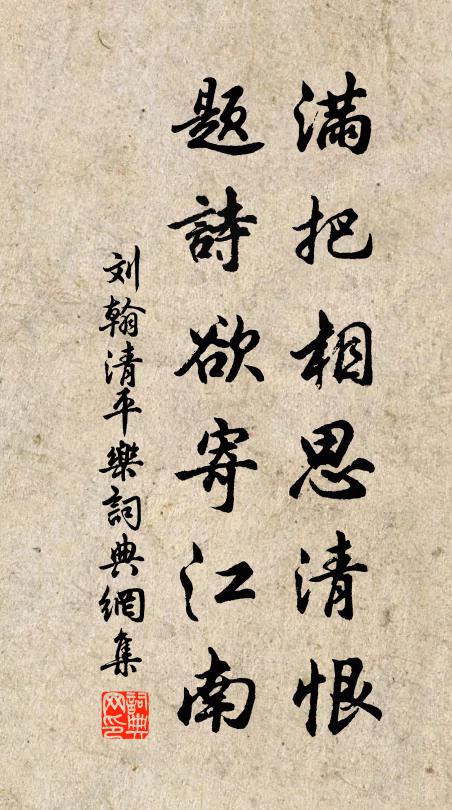 满把相思清恨
题詩欲寄江南
刘翰清平樂詞典網集
詞典网印